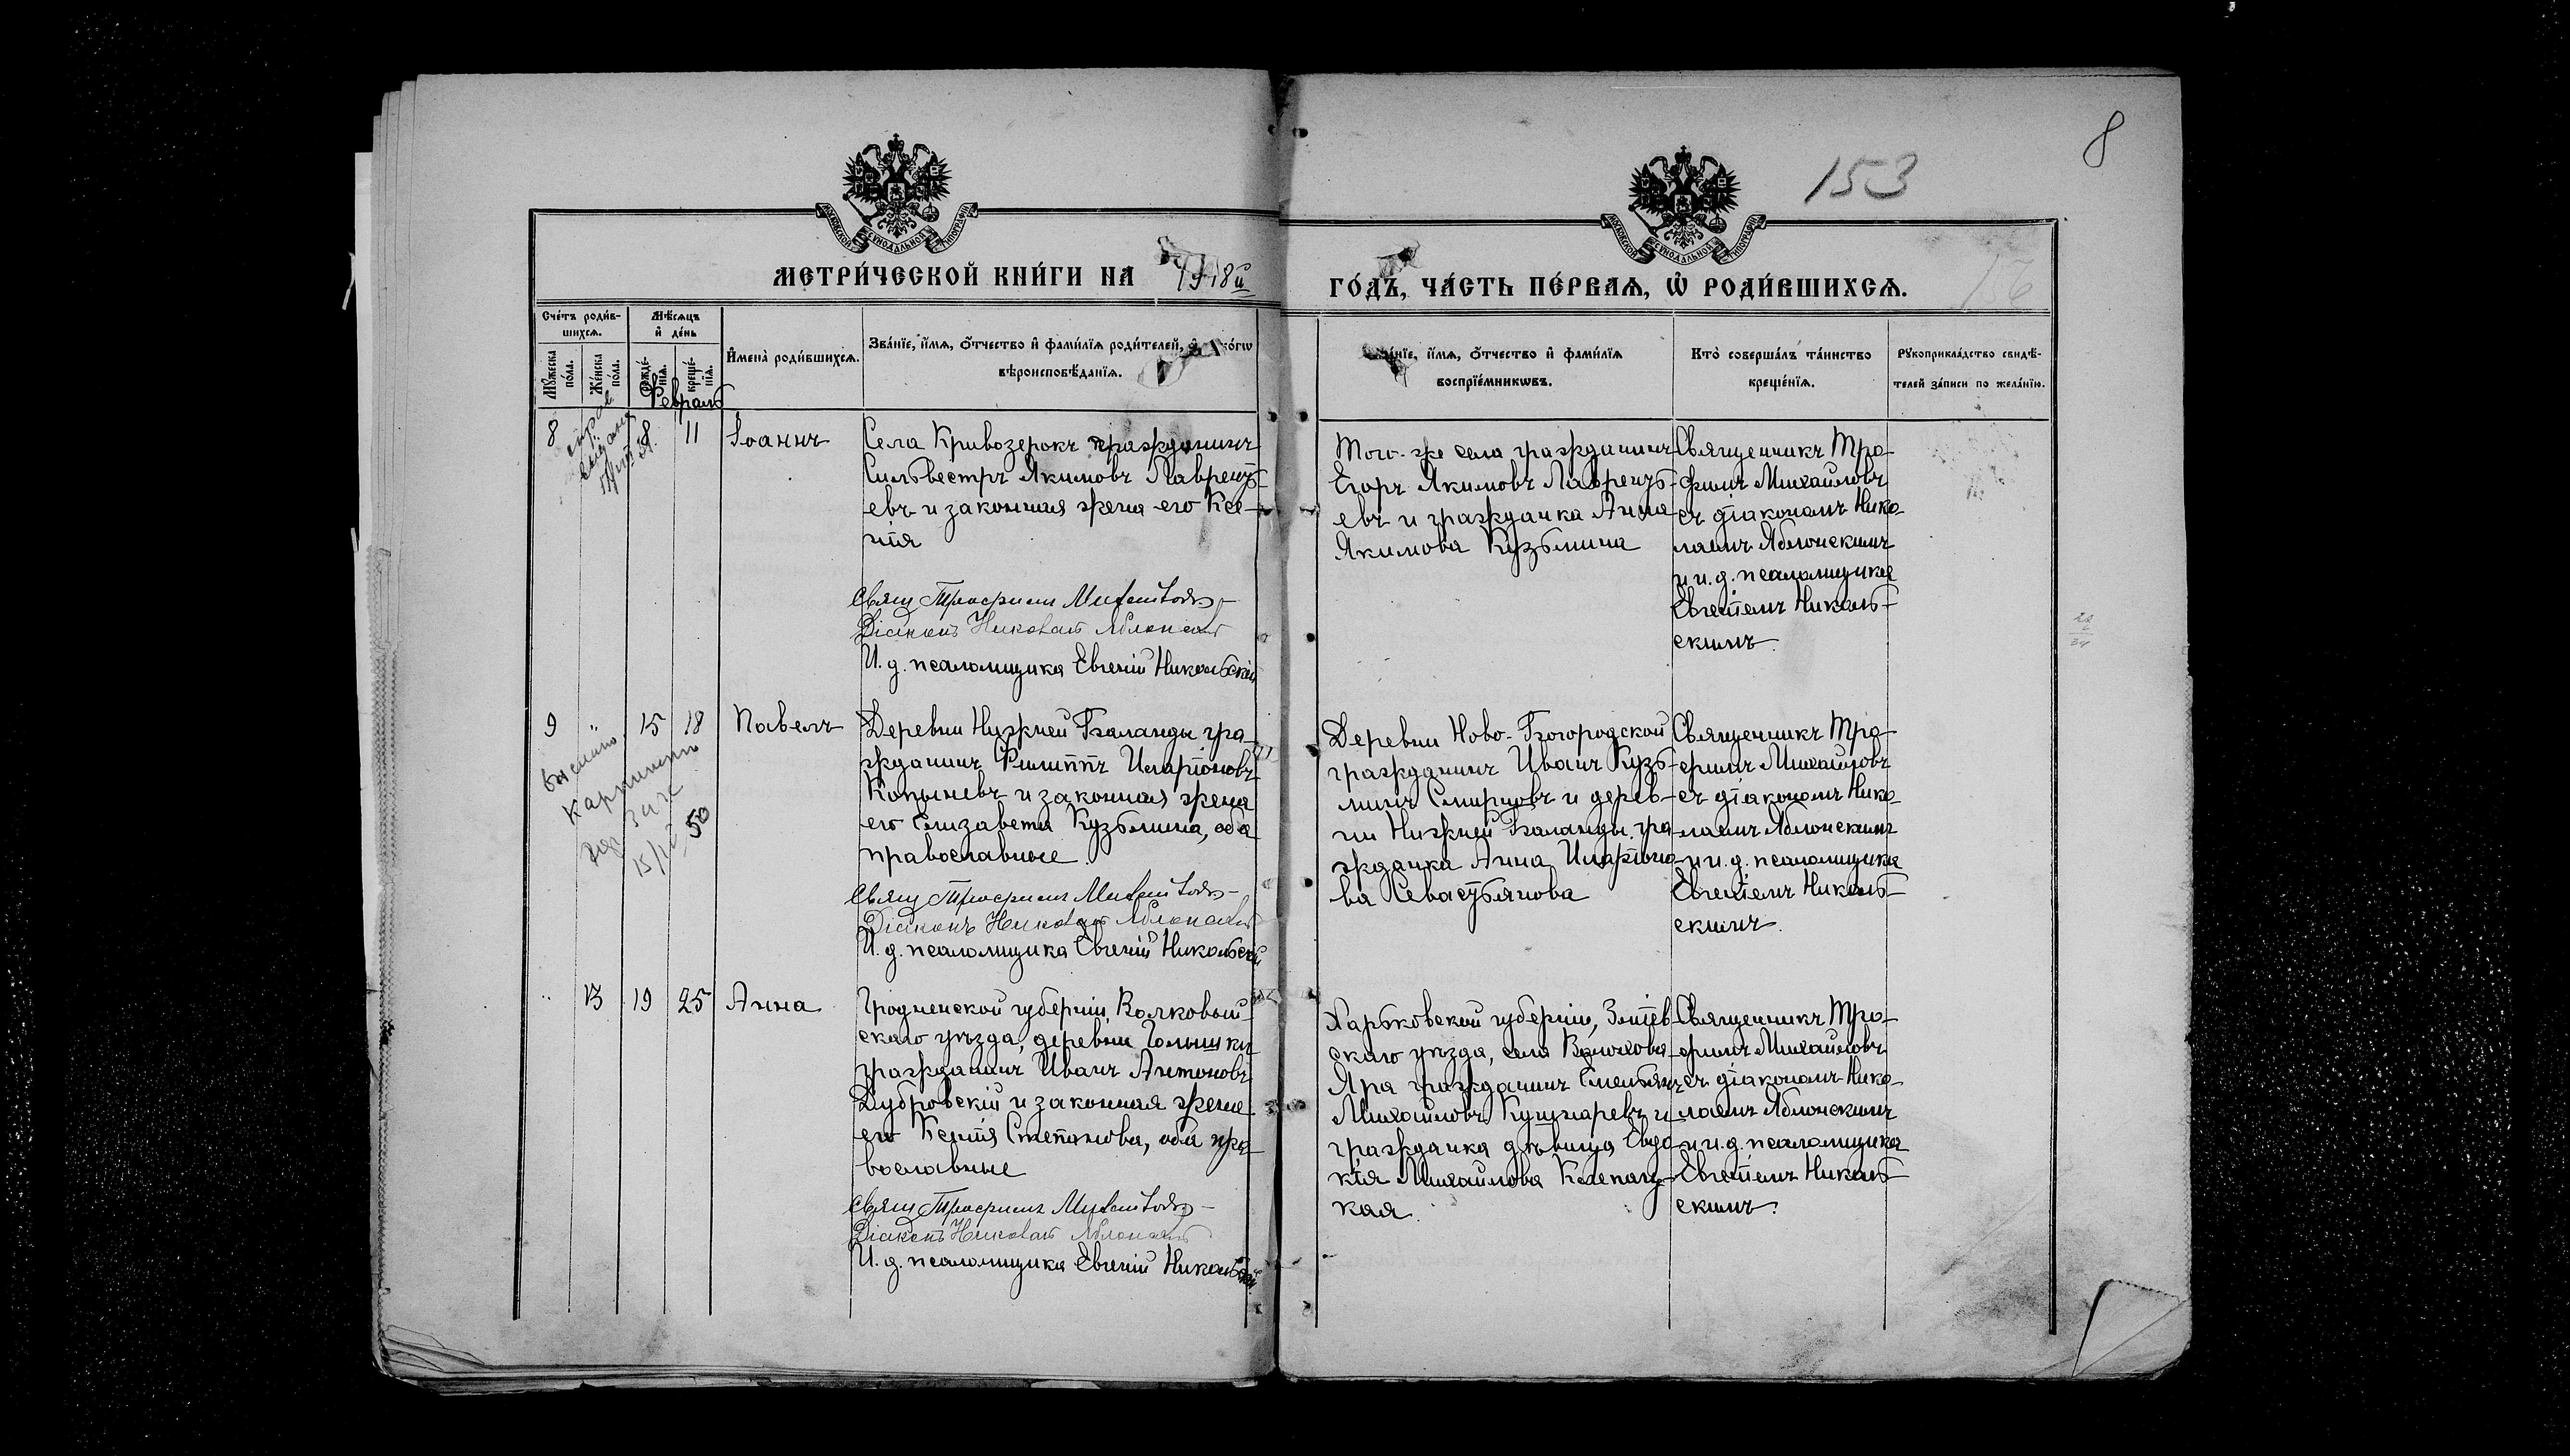 8
153
МОСКОВСКОЙ СѴНОДАЛЬНОЙ ТИПОГРАФІИ
МОСКОВСКОЙ СѴНОДАЛЬНОЙ ТИПОГРАФІИ
МЕТРИ́ЧЕСКОЙ КНИ́ГИ НА 1918й
ГО́ДЪ, ЧА́СТЬ ПЕ́РВАѦ, Ѡ҆ РОДИ́ВШИХСѦ.
Сче́тъ роди́в-
шихсѧ.
Мꙋ́жеска
по́ла.
Же́нска
по́ла.
Мѣ́сѧцъ
и҆ де́нь
Рожде́-
нїѧ.
креще́-
нїѧ.
И҆мена̀ роди́вшихсѧ.
Зва́нїе, и҆́мѧ, ѻ҆́тчество и҆ фами́лїѧ роди́телей, и҆ ко́гѡ
вѣроисповѣ́данїѧ.
и҆́мѧ, ѻ҆́тчество и҆ фами́лїѧ
воспрїе́мникѡвъ.
Кто̀ соверша́лъ та́инство
креще́нїѧ.
Рꙋкоприкла́дство свидѣ́-
телей за́писи по жела́нїю.
Февраль
8
8
11
Іоаннъ
Села Кривозерокъ гражданинъ
Сильвестръ Якимовъ Лаврентъ-
евъ и законная жена его Ксе-
нія
Свящ Трофимъ Михайловъ
Діаконъ Николай Яблонскій
И. д. псаломщика Евгеній Никольскій
Того-же села гражданинъ
Егоръ Якимовъ Лаврентъ-
евъ и гражданка Анна
Якимова Кузьмина
Священникъ Тро-
фимъ Михайловъ
съ діакономъ Нико-
лаемъ Яблонскимъ
и и. д. псаломщика
Евгеніемъ Николь-
скимъ.
9
"
15
18
Павелъ
15/II 50
Деревни Нижней Баланды гра-
жданинъ Филиппъ Иларіоновъ
Копыневъ и законная жена
его Елизавета Кузьмина, оба
православные.
Свящ Трофимъ Михайловъ
Діаконъ Николай Яблонскій
И. д. псаломщика Евгеній Никольскій
Деревни Ново-Богородской
гражданинъ Иванъ Кузь-
минъ Смирновъ и дерев-
ни Нижней Баланды гра-
жданка Анна Иларіоно-
ва Севастьянова
Священникъ Тро-
фимъ Михайловъ
съ діакономъ Нико-
лаемъ Яблонскимъ
и и. д. псаломщика
Евгеніемъ Николь-
скимъ.
"
13
19
25
Анна
Гродненской губерніи, Волковый-
скаго уѣзда, деревни Голышки
гражданинъ Иванъ Антоновъ
Дубровскій и законная жена
его Ксенія Степанова, оба пра-
вославные
Свящ Трофимъ Михайловъ
Діаконъ Николай Яблонскій
И. д. псаломщика Евгеній Никольскій
Харьковской губерніи, Зміев-
скаго уѣзда, села Волохова
Яра гражданинъ Емельянъ
Михайловъ Кушнаревъ и
гражданка дѣвица Евдо-
кія Михайлова
кая.
Священникъ Тро-
фимъ Михайловъ
съ діакономъ Нико-
лаемъ Яблонскимъ
и и. д. псаломщика
Евгеніемъ Николь-
скимъ.